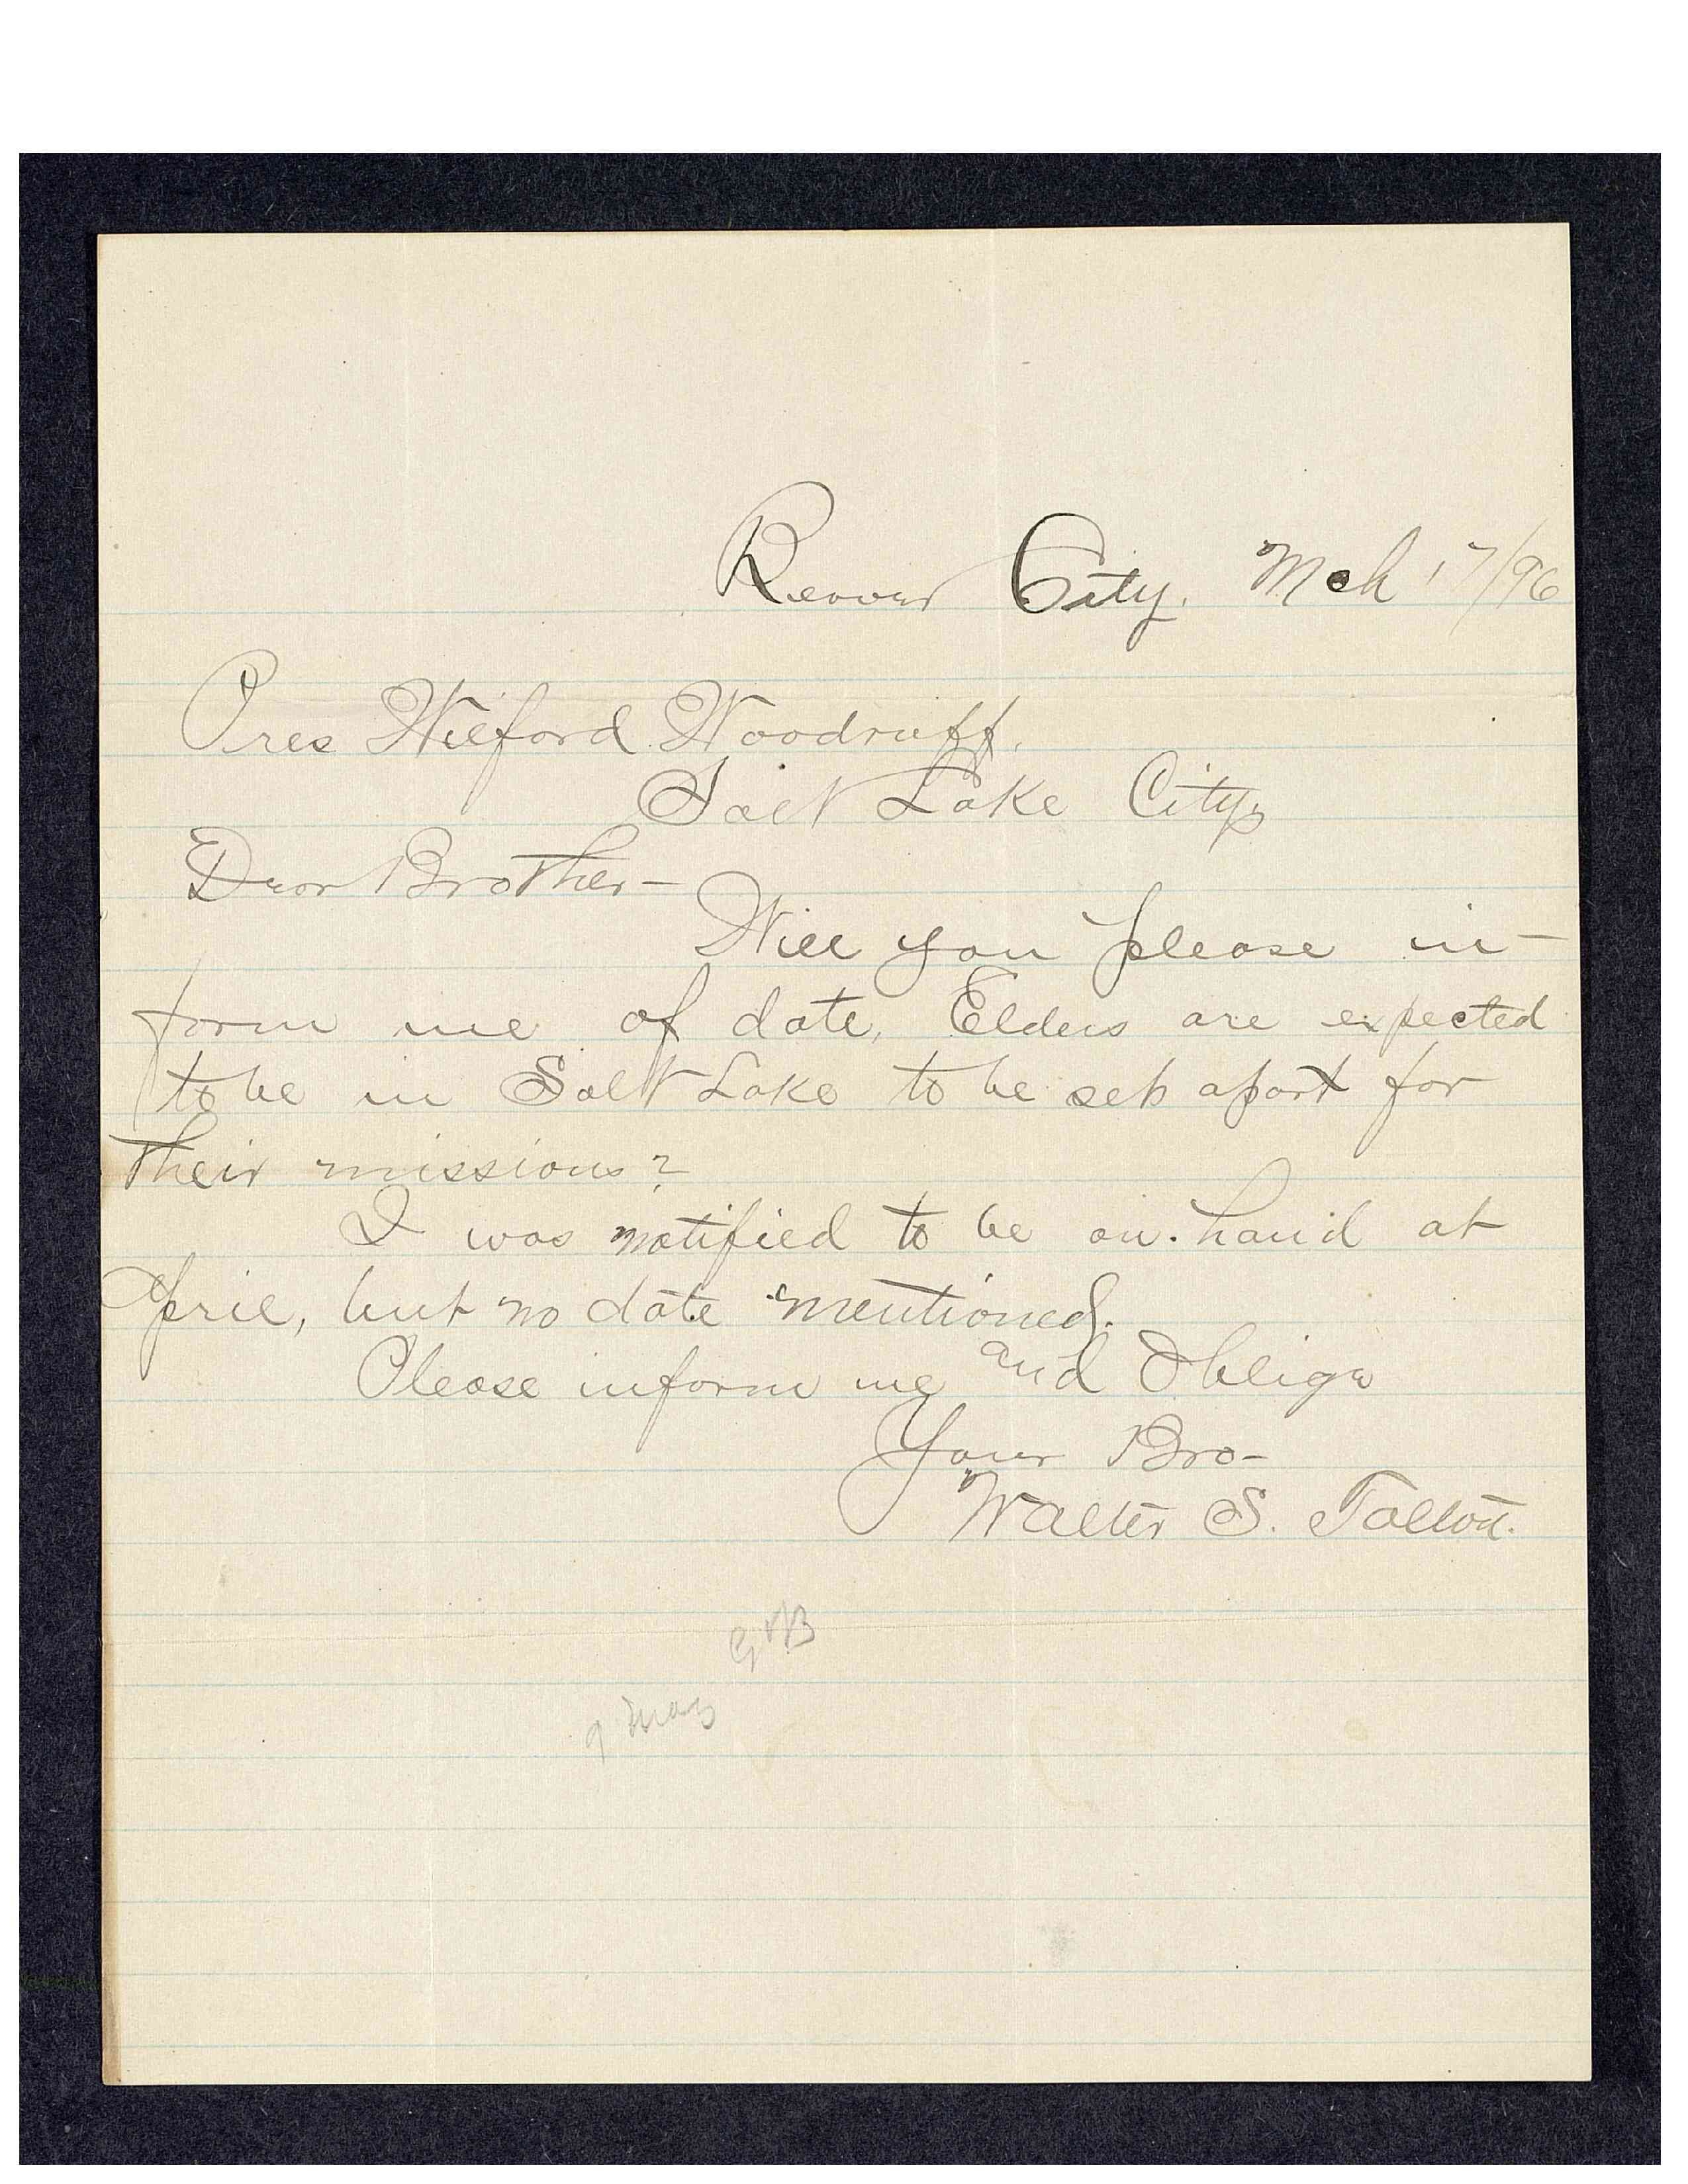 Beaver City. Mch 17/96
Pres Wilford Woodruff.
Salt Lake City
Dear Brother—
Will you please in-
form me of date, Elders are expected
to be in Salt Lake to be set apart for
their missions?
I was notified to be on hand at
April, but no date mentioned.
Please inform me and Oblige
Your Bro-
Walter S. Tolton.
9 May